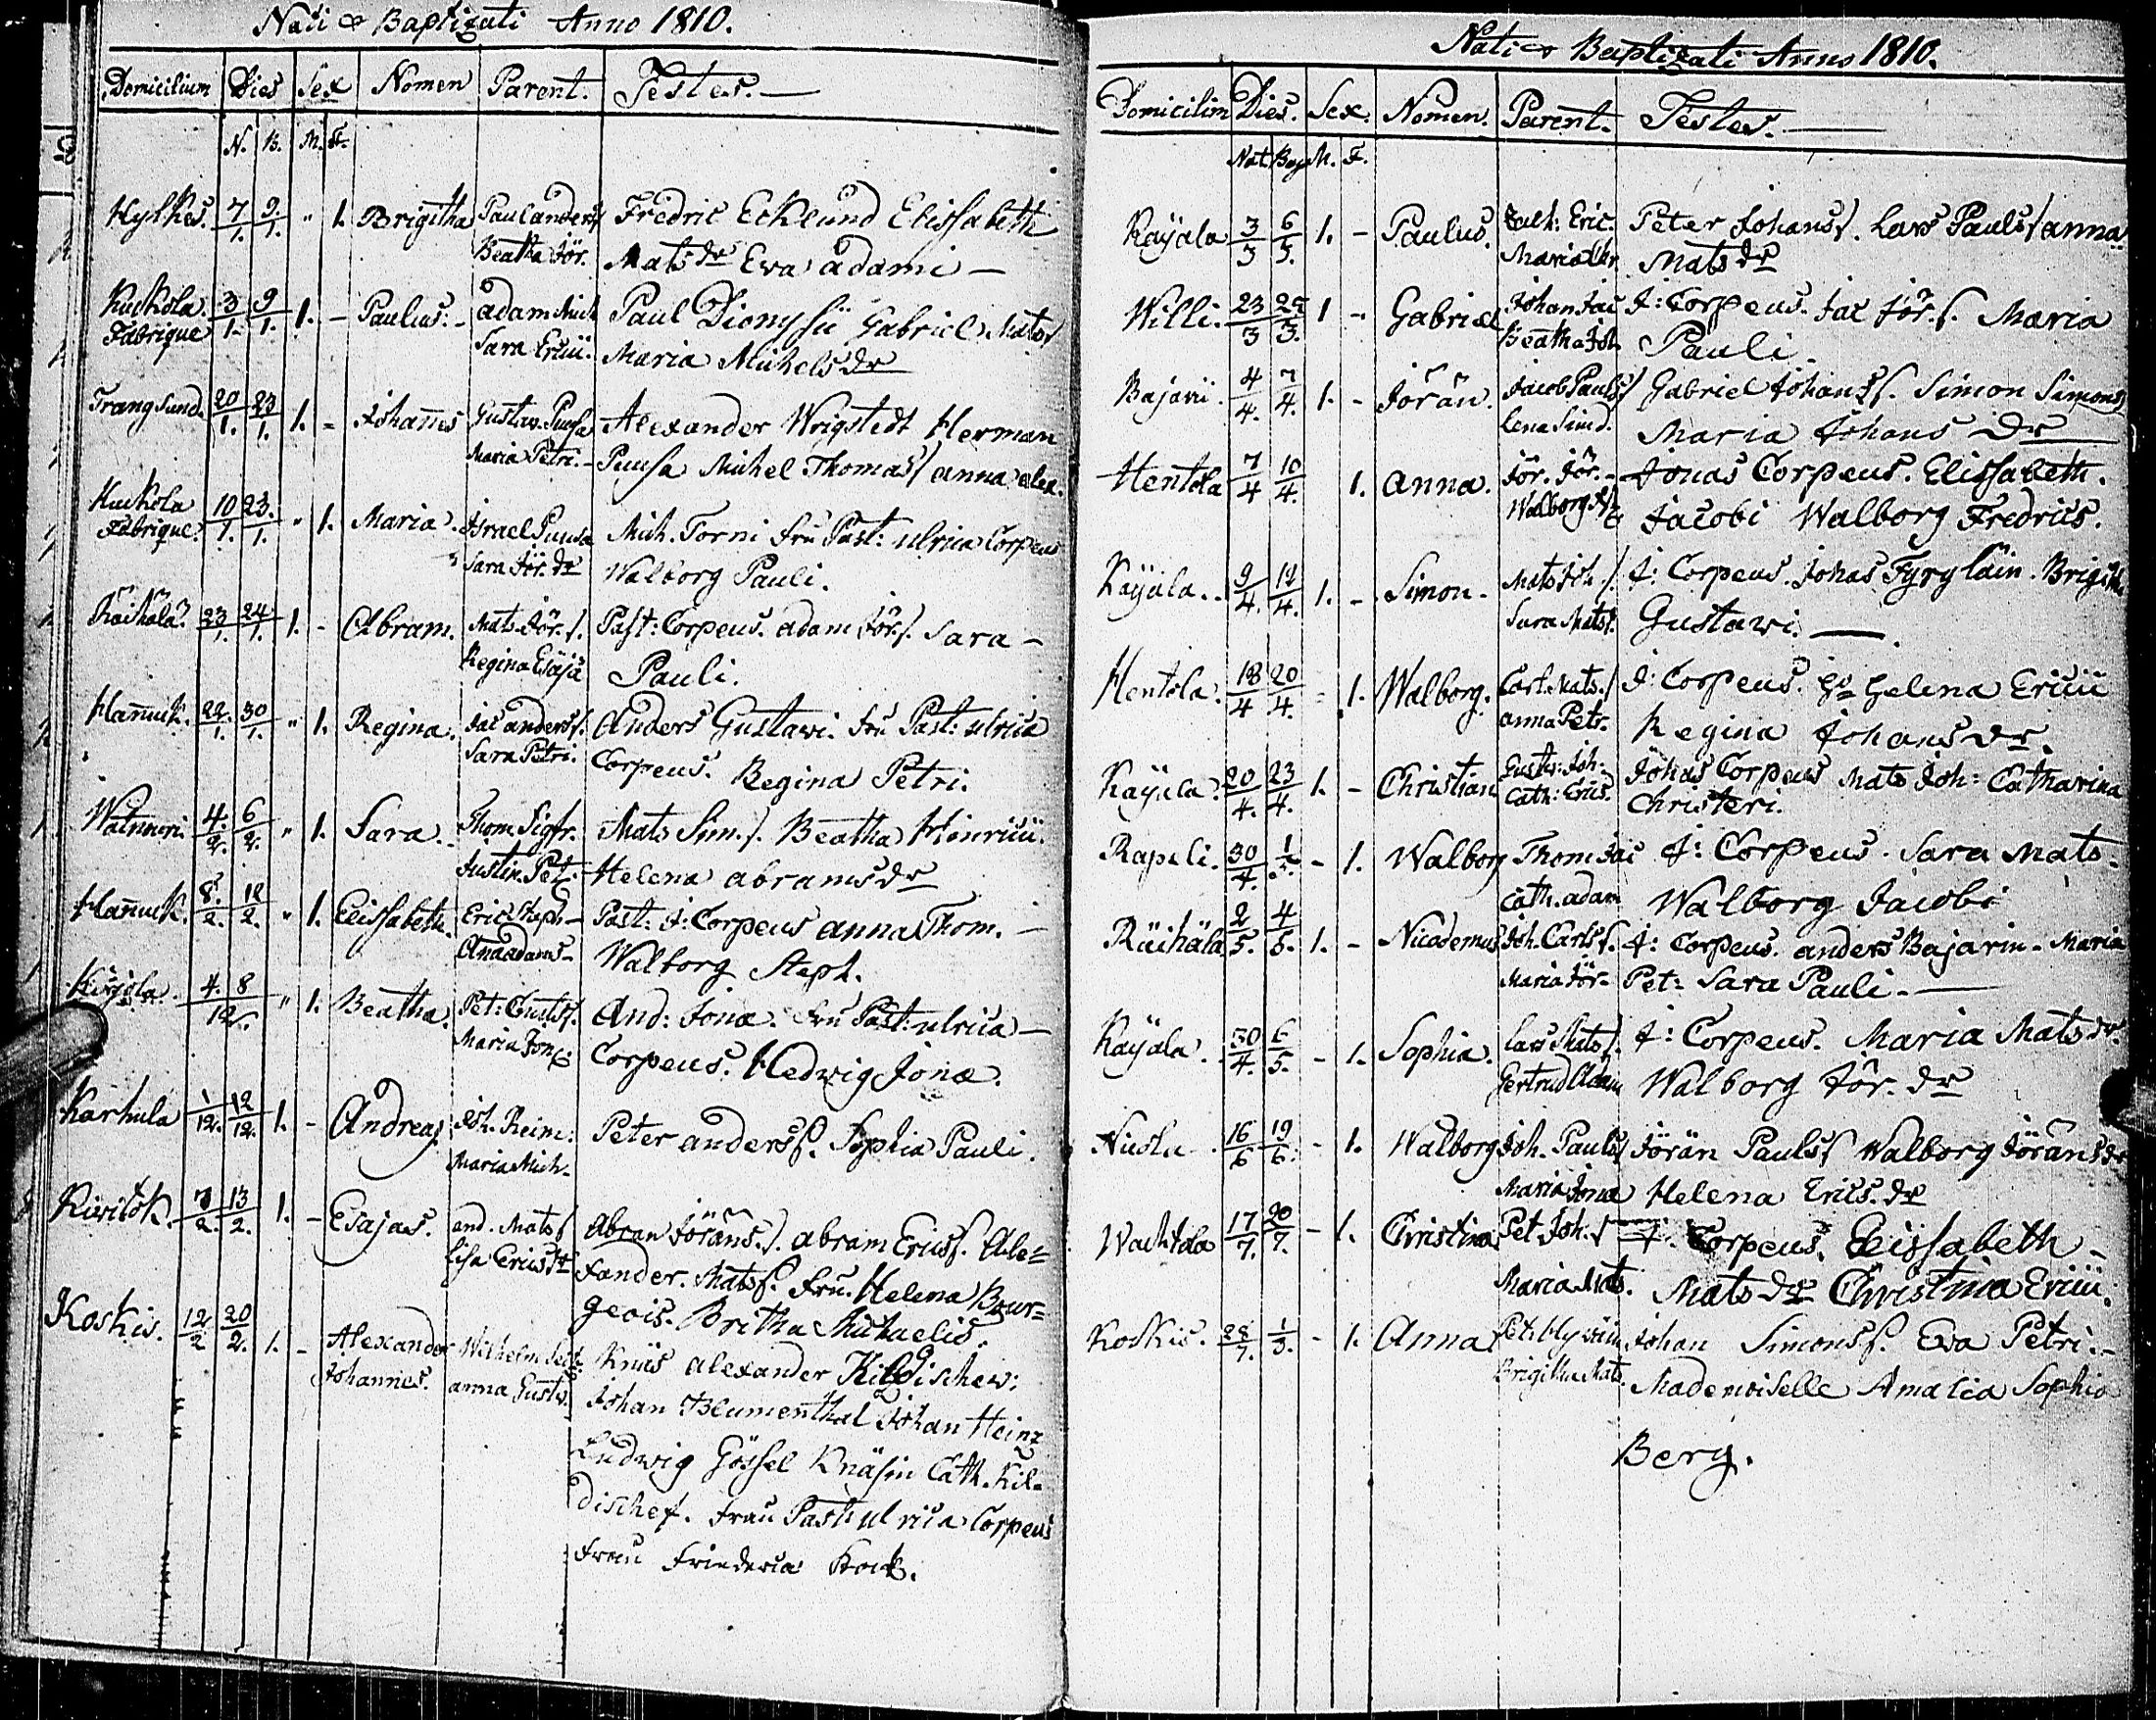 Nati & Baptizati Anno 1810.
Domicilium Dies Sex Nomen Parent. Testes.
N. B. M. F.
Hylkes. 7/1. 9/1. " 1. Brigitha Paul anders Fredric Ecklund Elissabeth
Beatha Jör. Mats dr Eva adami
Kuckola 3/1. 9/1. 1. - Paulus. adam Mich Paul Dionysii Gabriel Mats
Fabrique Sara Ericii. Maria Michels dr
Trangsund. 20/1. 23/1. 1. - Johannes Gustav. Puusa Alexander Wrigstedt Herman
Maria Petri. Puusa Michel Thomas anna alex.
Kuckola 10/1. 23./1. " 1. Maria. Israel Puusa Mich. Torni Fru Past: ulrica Corpeus
Fabrique. Sara Jör. dr Walborg Pauli.
Räihälä 23/1. 24/1. 1. - Abram. Mats Jör. s. Past: Corpeus. adam Jör s. Sara
Regina Esajä Pauli.
Hannuk. 22./1. 30/1. " 1. Regina. Jac anders s. Anders Gustavi. Fru Past: ulrica
Sara Petri. Corpeus. Regina Petri.
Watnuori. 4./2. 6/2. " 1. Sara. Thom. Sigfr. Mats Sim. s. Beatha Hinricii.
Justin. Pet. Helena abrams dr
Hannuk. 8./2. 12/2. " 1. Elissabeth. Eric Steph Past: J: Corpeus anna Thom.
Ana adams Walborg Steph.
Kirjola. 4. 8/12. " 1. Beatha. Pet: Gusts s. And: Jonæ. Fru Past: ulrica
Maria Jonæ Corpeus. Hedwig Jonæ.
Karhula 1/12. 12/12. 1. - Andreas Joh. Heinr: Peter anders s. Sophia Pauli.
Maria Mich.
Rivitök. 7/2. 13/2. 1. - Esajas. and. Mats s Abram Jörans. s. abram Erics s. Ale=
Lisa Erics dr xander. Mats s. Fru. Helena Bour=
geois. Britha Michaelis.
Koskis. 12/2 20/2. 1. - Alexander Wilhelm Knäs Alexander Kildischew:
Johannes. anna Gustv. Johan Blumenthal Johan Heinr
Ludwig Gössel Knäsin Cath. Kil=
dischef. Frau Past: ulrica Corpeus
Frau Friederica Kock.
Nati & Baptizati Anno 1810.
Domicilim Dies. Sex. Nomen. Parent. Testes.
Nat Bap M. F.
Käyälä 3/3 6/3. 1. - Paulus. Eric. Peter Johans s. Lars Pauls s anna
Maria Mats dr
Willi. 23/3 25/3. 1 - Gabriel Johan Jac J: Corpeus. Jac Jör. s. Maria
Beatha Joh. Pauli.
Bajarii. 4/4. 7/4. 1. - Jörän. Jacob Pauls s Gabriel Johans s. Simon Simons
Lena Sim d. Maria Johans Dr
Hentola 7/4 10/4. 1. Anna. Jör. Jör. Jonas Corpeus. Elissabeth.
Walborg Jacobi Walborg Fredrics.
Käyälä. 9/4. 12/4. 1. - Simon. Mats Joh. s. J: Corpeus. Johas Tyryläin. Brigith
Sara Mats. Gustavi.
Hentola. 18/4 20/4. - 1. Walborg. Carl Mats. s J: Corpeus. Helena Ericii
anna Petr. Regina Johans dr.
Käyälä. 20/4. 23/4. 1. - Christian Gustv: Joh: Johas Corpeus Mats Joh: Catharina
Cath: Erics. Christeri.
Rapeli. 30/4. 1/5. - 1. Walborg Thom Jac J: Corpeus. Sara Mats
Cath. adam Walborg Jacobi
Räihälä 2/5. 4/5. 1. - Nicodemus Joh. Carls s. J: Corpeus. anders Bajarin. Maria
Maria Jör. Pet: Sara Pauli.
Käyälä. 30/4. 6/5. - 1. Sophia. Lars Mats s. J: Corpeus. Maria Mats dr.
Gertrud Adam Walborg Jör. dr
Niusla. 16/6 19/6. - 1. Walborg Joh. Pauls s Jörän Pauls s Walborg Jöräns dr
Maria Jonæ Helena Erics. dr
Wachtola 17/7. 20/7. - 1. Christina Pet Joh. s J. Corpeus. Elissabeth
Maria Mats. Mats dr Christina Ericii.
Koskis. 28/7. 1/3. - 1. Anna Pet: Johan Simons s. Eva Petri.
Brigitha Mats. Mademoiselle Amalia Sophia
Berg.